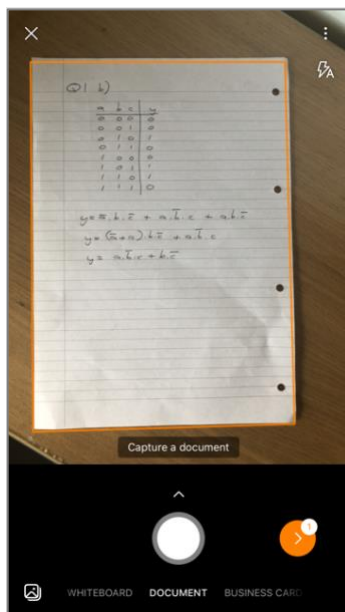 Q1 b)
a b c y
0 0 0 0
0 0 1 0
0 1 0 1
0 1 1 0
1 0 0 0
1 0 1 1
1 1 0 1
1 1 1 0
y = a̅.b.c̅ + a.b̅.c + a.b.c̅
y = (a̅+a).b.c̅ + a.b̅.c
y = a.b̅.c + b.c̅
Capture a document
1
WHITEBOARD DOCUMENT BUSINESS CARD